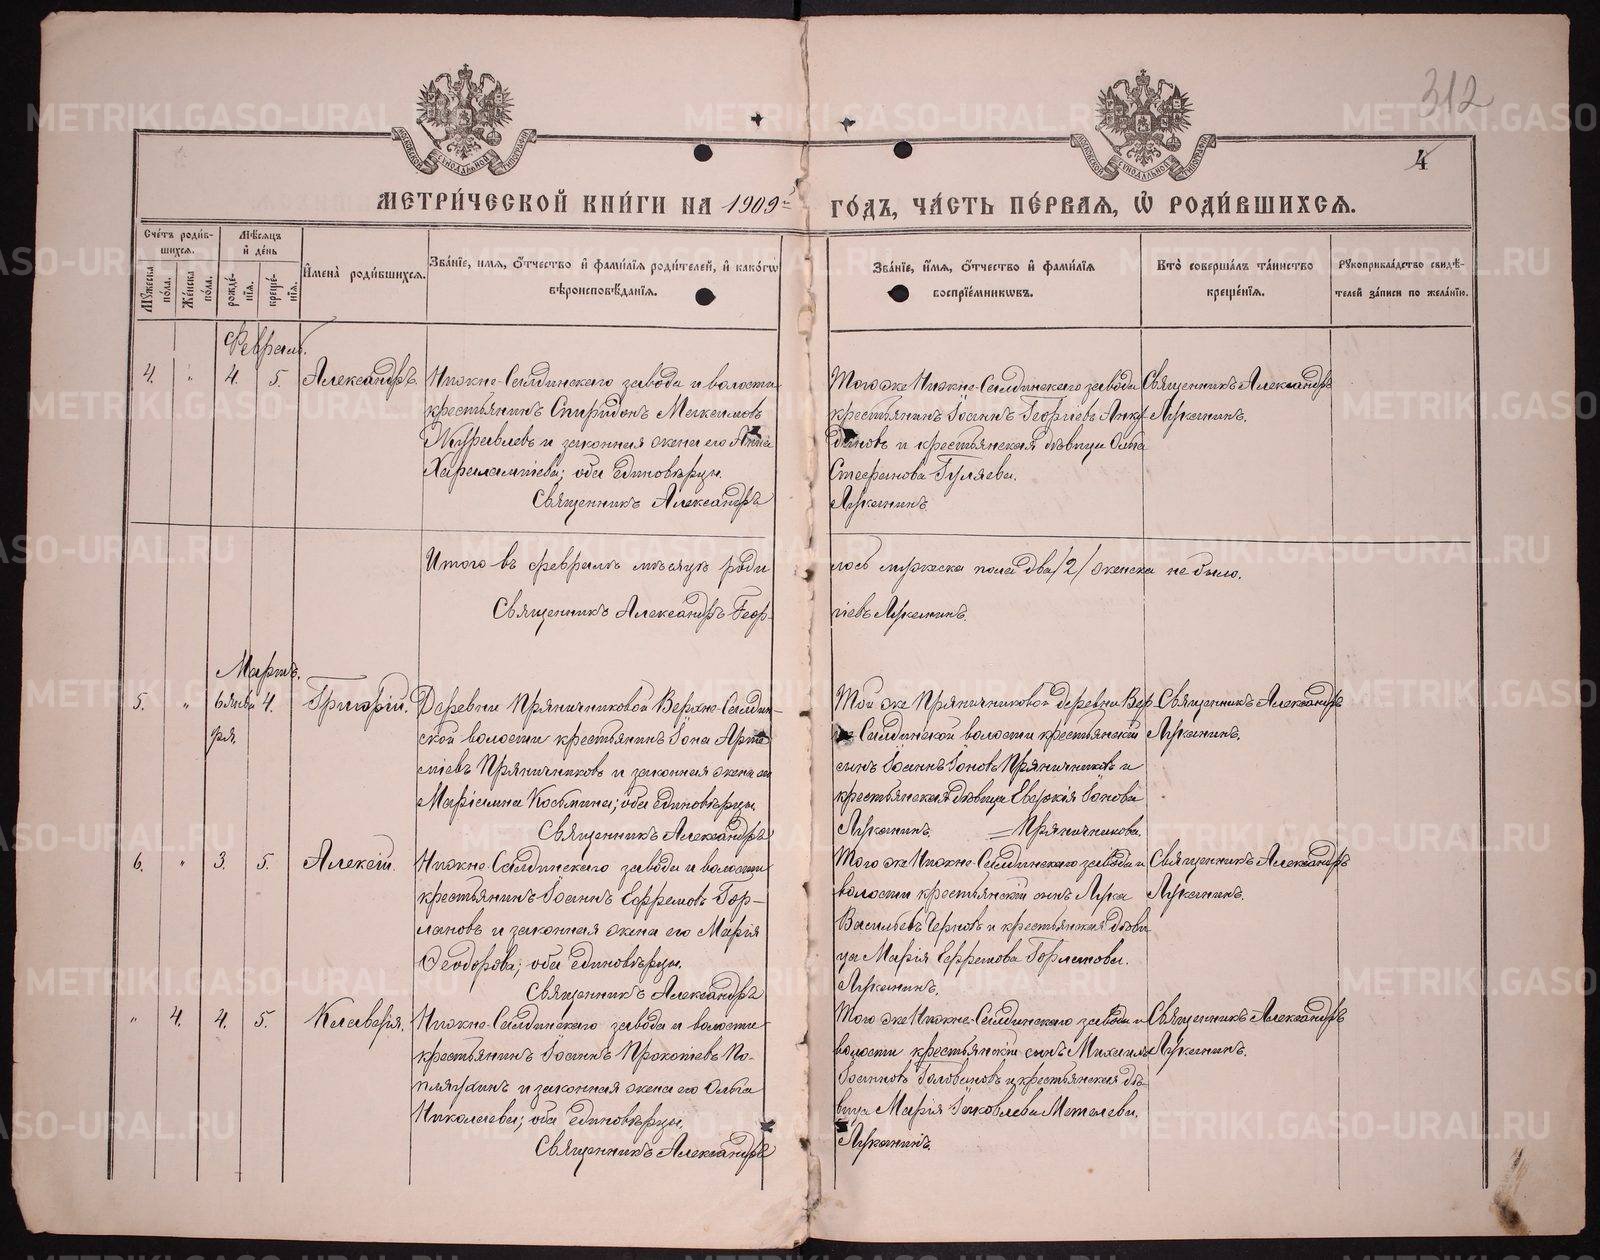 312
4
МОСКОВСКОЙ СѴНОДАЛЬНОЙ ТИПОГРАФІИ
МОСКОВСКОЙ СѴНОДАЛЬНОЙ ТИПОГРАФІИ
МЕТРИ́ЧЕСКОЙ КНИ́ГИ НА 1909й ГО́ДЪ, ЧА́СТЬ ПЕ́РВАЯ, Ѡ РОДИ́ВШИХСЯ.
Сче́тъ роди́вшихся.
Мꙋ́жеска по́ла.
Же́нска по́ла.
Мѣ́сяцъ и де́нь
рожде́нїя.
креще́нїя.
Имена̀ роди́вшихся.
Зва́нїе, имя, о́тчество и фами́лїя роди́телей, и како́гѡ вѣроисповѣ́данїя.
Зва́нїе, и́мя, о́тчество и фами́лїя воспрїе́мникѡвъ.
Кто̀ соверша́лъ та́инство креще́нїя.
Рꙋкоприкла́дство свидѣ́телей за́писи по жела́нїю.
Февраль.
4. " 4. 5. Александръ.
Нижне-Салдинскаго завода и волости
крестьянинъ Спиридонъ Максимовъ
Журавлевъ и законная жена его Анна
Харалампіева; оба единовѣрцы.
Священникъ Александръ
Того же Нижне-Салдинскаго завода
крестьянинъ Іоаннъ Георгіевъ Анку
диновъ и крестьянская дѣвица Ольга
Стефанова Гуляева.
Лукинъ.
Священникъ Александръ
Лукинъ.
Итого въ февралѣ мѣсяцѣ роди
лось мужеска пола два /2/ женска не было.
Священникъ Александръ Геор-
гіевъ Лукинъ.
Мартъ.
5. " 6 янва 4. Григорій.
ря.
Деревни Пряничниковой Верхне-Салдин-
ской волости крестьянинъ Іона Арте
міевъ Пряничниковъ и законная жена его
Маріамна Космина; оба единовѣрцы.
Священникъ Александръ
Той же Пряничниковой деревни Верх
не Салдинской волости крестьянскій
сынъ Іоаннъ Іоновъ Пряничниковъ и
крестьянская дѣвица Евдокія Іонова
Лукинъ. =Пряничникова.
Священникъ Александръ
Лукинъ.
6. " 3 5. Алексій.
Нижне-Салдинскаго завода и волости
крестьянинъ Іоаннъ Ефремовъ Гор-
лановъ и законная жена его Марія
Ѳеодорова; оба единовѣрцы.
Священникъ Александръ
Того же Нижне-Салдинскаго завода и
волости крестьянскій сынъ Лука
Васильевъ Черновъ и крестьянская дѣви
ца Марія Ефремова Горланова.
Лукинъ.
Священникъ Александръ
Лукинъ.
" 4. 4. 5. Клавдія.
Нижне-Салдинскаго завода и волости
крестьянинъ Іоаннъ Прокопіевъ По-
плаухинъ и законная жена его Ольга
Николаева; оба единовѣрцы.
Священникъ Александръ
Того же Нижне-Салдинскаго завода и
волости крестьянскій сынъ Михаилъ
Іоанновъ Головановъ и крестьянская дѣ-
вица Марія Іаковлева Метелева.
Лукинъ.
Священникъ Александръ
Лукинъ.
METRIKI.GASO-URAL.RU